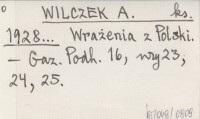 WILCZEK A. ks.
1928... Wrażenia z Polski.
— Gaz. Podh. 16, nry 23,
24, 25.